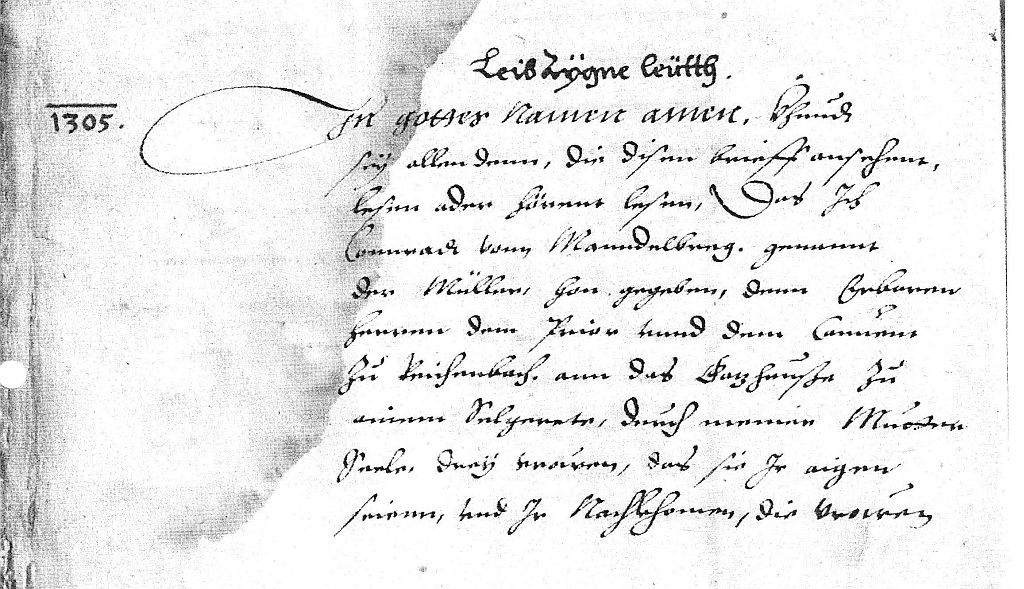 LeibZÿgne leütth.
1305.
In gottes Namen amen. Khundt
seÿ allen denn, die disen brieff ansehent,
lesen oder hörent lesen, Das Ich
Connradt vonn Manndelberg. genannt
der Müller, hon gegeben, denn Erbaren
herren dem Prior vnnd dem Conuent
zu Reichenbach. ann das Gotzhauße zu
ainem Selgerete, durch meiner Mutter
Seele. dreÿ vrowen, das sie Ir aigen
seienn, vnd Ir Nachkhomen, die vrowen